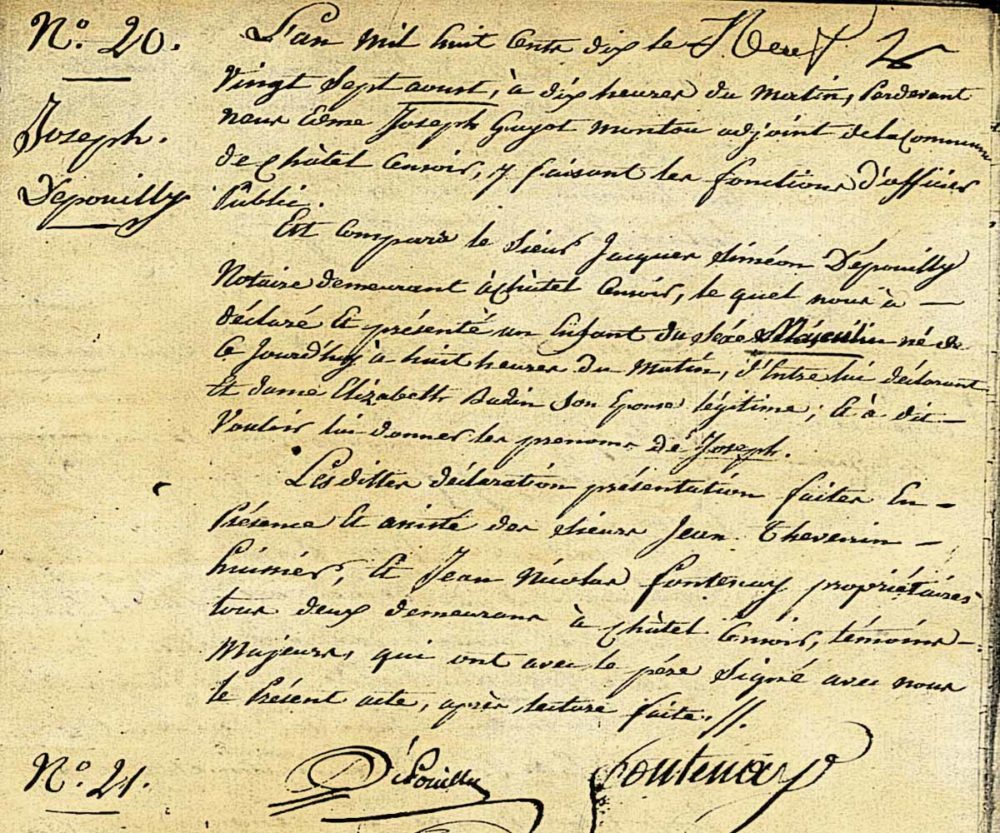 N.º 20.
Joseph.
Dépouilly
L'an mil huit Cents dix le
Vingt Sept aoust, à dix heures du Matin, Pardevant
nous Edme Joseph Guyot Montou adjoint de la Commune
de Châtel Censoir, y faisant les fonctions d'officier
Public.
Est Comparu le Sieur Jacques Siméon Dépouilly
Notaire demeurant à Châtel Censoir, le quel nous à —
déclaré Et présenté un Enfant du Séxe Masculin né de
Ce Jourd'huy à huit heures du Matin, d'Entre lui déclarant
Et dame Elizabeth Badin Son Epouse légitime; Et à dit —
Vouloir lui donner les prenoms de Joseph.
Lesdittes déclaration présentation faites En —
Présence Et assisté des Sieurs Jean Thevenin —
huissier, Et Jean Nicolas Fontenay propriétaires
tous deux demeurans à Châtel Censoir, témoins —
Majeurs, qui ont avec le pére Signé avec nous
le Présent acte, après lecture faite.//.
N.º 21.
Dépouilly Fontenay